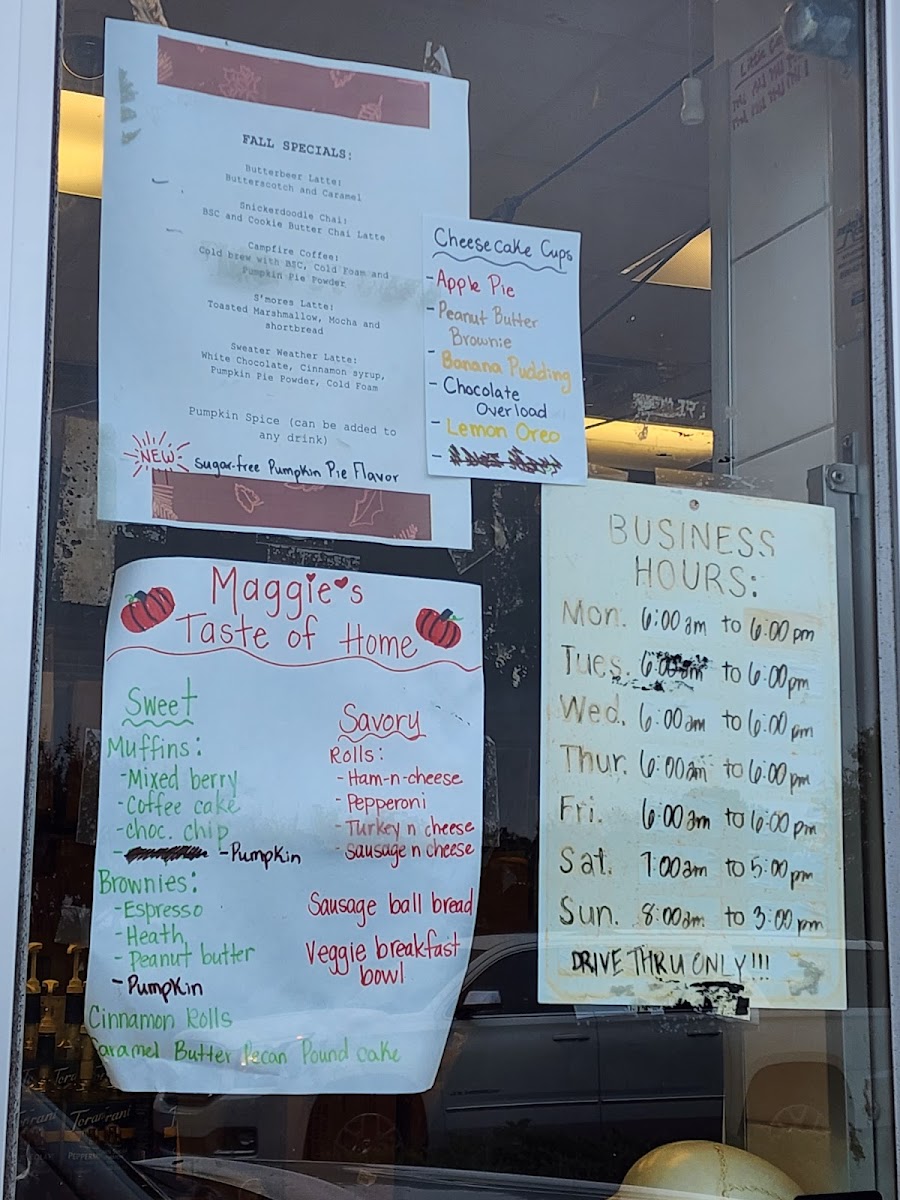 FALL SPECIALS:
Butterbeer Latte:
Butterscotch and Caramel
Snickerdoodle Chai:
BSC and Cookie Butter Chai Latte
Campfire Coffee:
Cold brew with BSC, Cold Foam and
Pumpkin Pie Powder
S'mores Latte:
Toasted Marshmallow, Mocha and
shortbread
Sweater Weather Latte:
White Chocolate, Cinnamon syrup,
Pumpkin Pie Powder, Cold Foam
Pumpkin Spice (can be added to
any drink)
NEW sugar-free Pumpkin Pie Flavor
Cheesecake Cups
- Apple Pie
- Peanut Butter
Brownie
- Banana Pudding
- Chocolate
Overload
- Lemon Oreo
-
Maggie's
Taste of Home
Sweet
Muffins:
- Mixed berry
- Coffee cake
- choc. chip
- - Pumpkin
Brownies:
- Espresso
- Heath
- Peanut butter
- Pumpkin
Cinnamon Rolls
Caramel Butter Pecan Pound cake
Savory
Rolls:
- Ham-n-cheese
- Pepperoni
- Turkey n cheese
- Sausage n cheese
Sausage ball bread
Veggie breakfast
bowl
BUSINESS
HOURS:
Mon. 6:00 am to 6:00 pm
Tues. 6:00am to 6:00pm
Wed. 6:00am to 6:00 pm
Thur. 6:00am to 6:00 pm
Fri. 6:00am to 6:00 pm
Sat. 7:00am to 5:00 pm
Sun. 8:00am to 3:00 pm
DRIVE THRU ONLY!!!
Torani